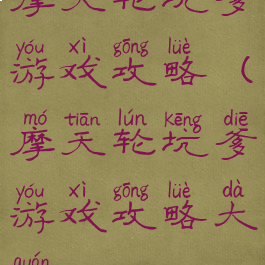 yóu xì gōng lüè
游戏攻略（
mó tiān lún kēng diē
摩天轮坑爹
yóu xì gōng lüè dà
游戏攻略大